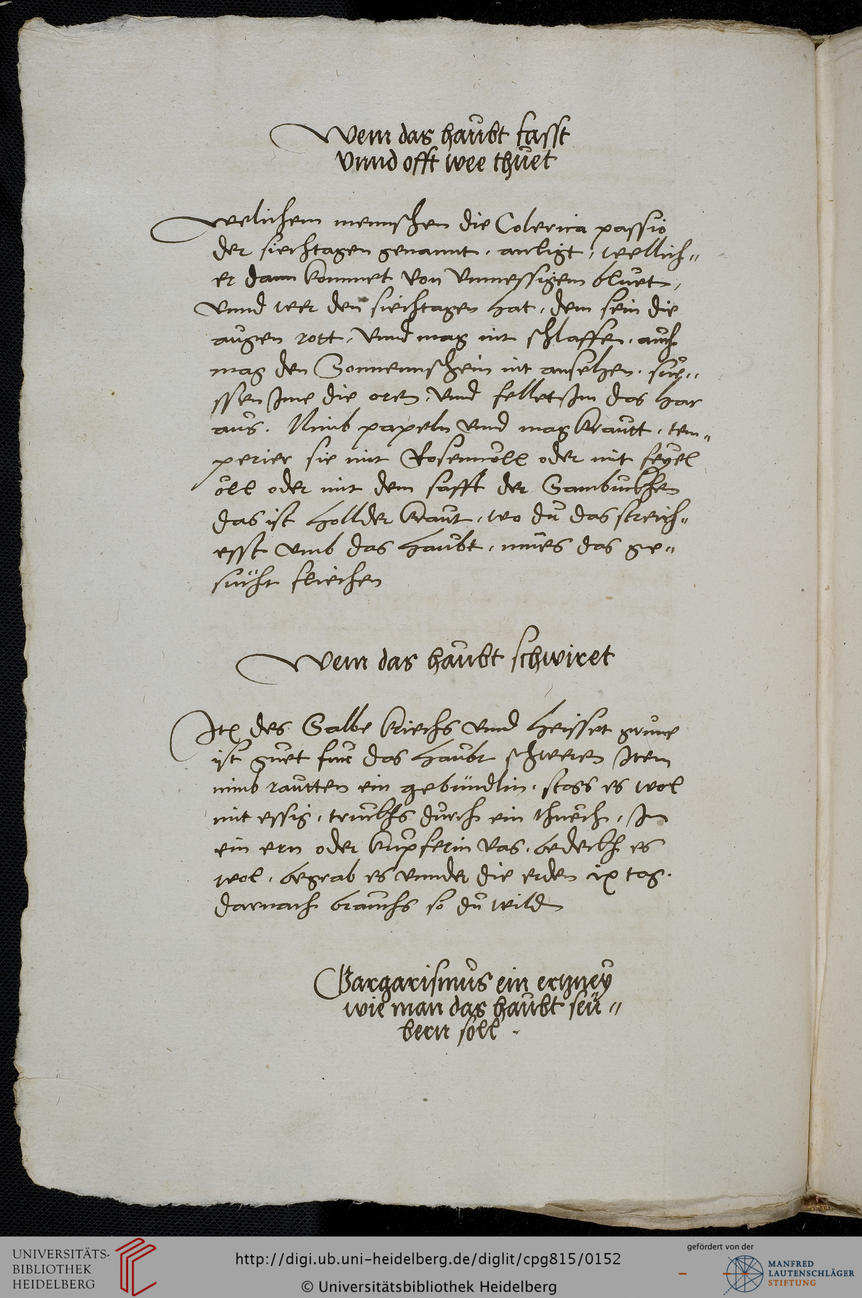 Wem das haubt fasst
Vnnd offt wee thuet
Welichem mennschen die Colerica passio
der siechtagen genannt, anligt, wellich„
er dann kommet von Vnmessigem bluet,
Vnnd wer den siechtagen hat, dem sein die
augen rott, Vnnd mag nit schlaffen, auch
mag den Sonnenschein nit ansehen,
ssen Ime die oren, Vnd felletIm das har
aus. Nimb papeln Vnd magkrautt, tem„
perier sie mit Rosennöll oder mit feyel
öll oder mit dem safft der Sambuckhen
das ist hollder kraut, wo du das streich„
esst Vmb das haubt, mues das ge„
sücht fliechen
Wem das haubt schwiret
Item des Salbe kriechs Vnnd heisset grune
ist guet fur das haubt schweren Item
nimb rautten ein gebündlin, stoss es wol
mit essig, truckhs durch ein thuech, In
ein ern oder kupferin Vas, bedeckh es
wol, begrab es Vnnder die erden ix tag.
darnach brauchs so du wild
Gargarismus ein ertzney
wie man das haubt seü„
bern soll.
UNIVERSITÄTS-
BIBLIOTHEK
HEIDELBERG
http://digi.ub.uni-heidelberg.de/diglit/cpg815/0152
© Universitätsbibliothek Heidelberg
gefördert von der
MANFRED
LAUTENSCHLÄGER
STIFTUNG